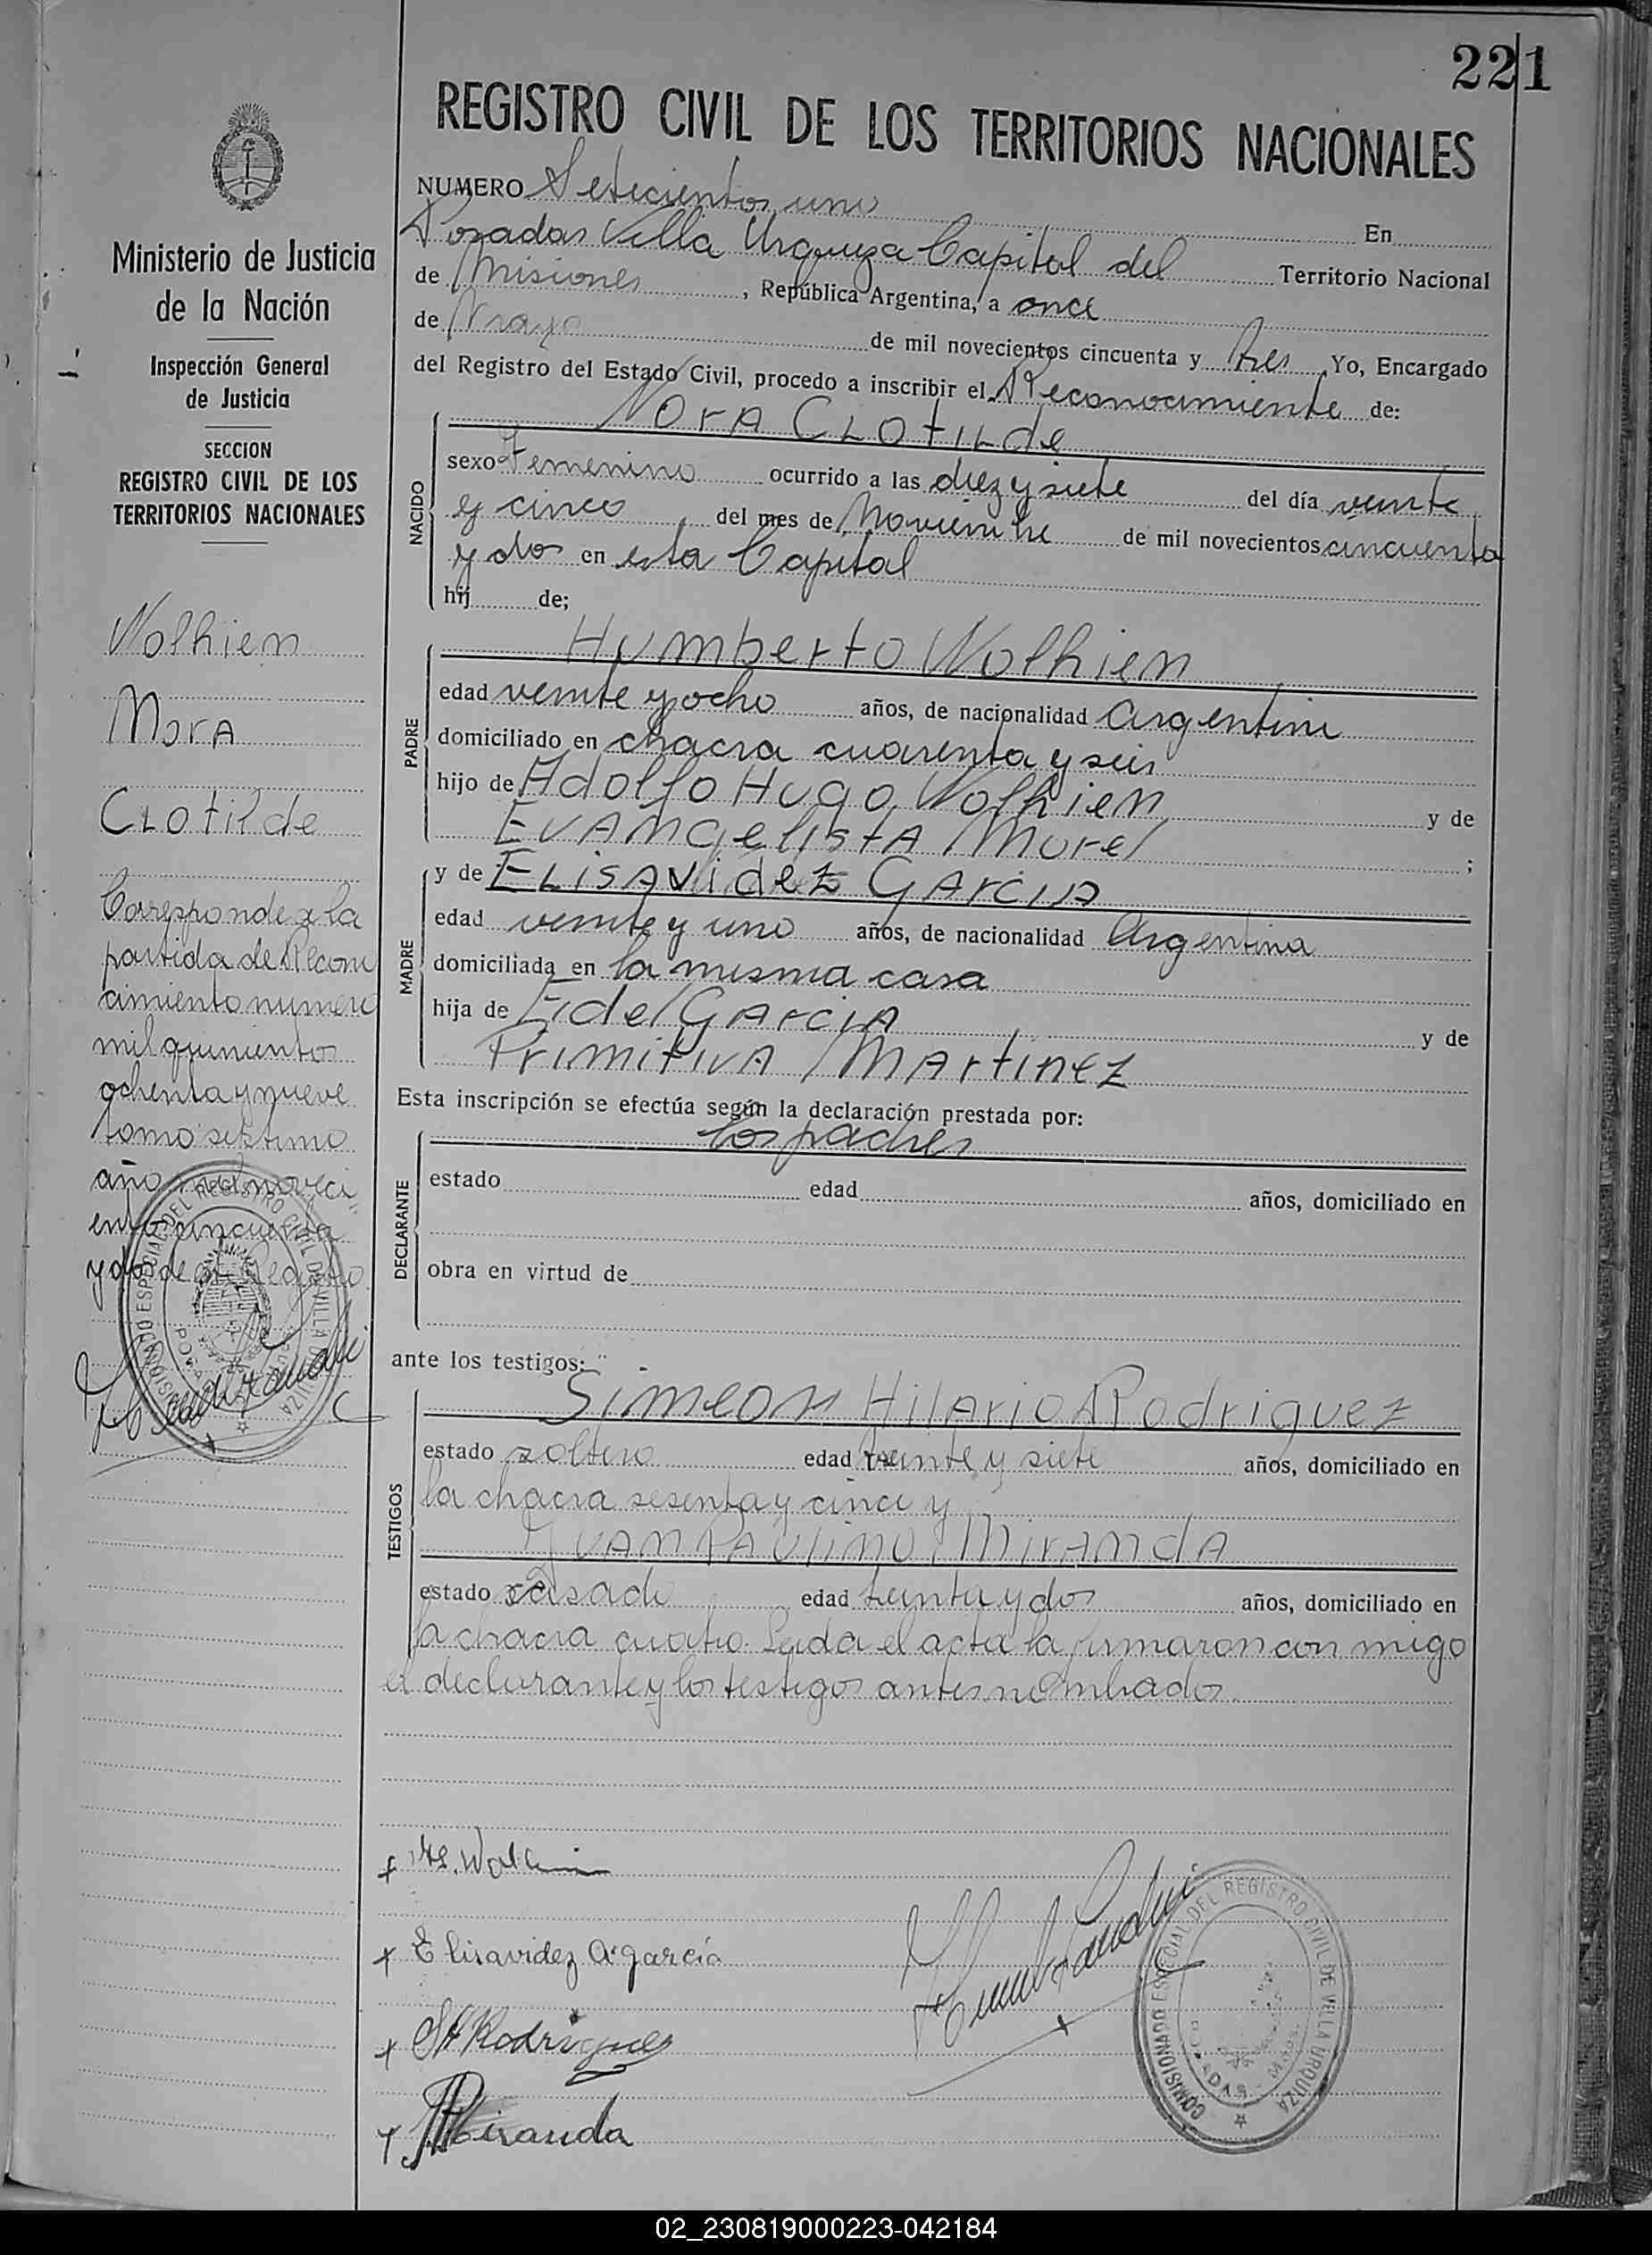 221
REGISTRO CIVIL DE LOS TERRITORIOS NACIONALES
NUMERO Setecientos uno En
Posadas Villa Urquiza Capital del Territorio Nacional
de Misiones, República Argentina, a once
de Mayo de mil novecientos cincuenta y tres Yo, Encargado
del Registro del Estado Civil, procedo a inscribir el Reconocimiento de:
NACIDO
NorA CLOtILde
sexo Femenino ocurrido a las diez y siete del día veinte
y cinco del mes de Noviembre de mil novecientos cincuenta
y dos en esta Capital
hij de;
PADRE
Humberto Wolhien
edad veinte y ocho años, de nacionalidad Argentino
domiciliado en chacra cuarenta y seis
hijo de Adolfo Hugo Wolhien y de
EvANgelistA Morel ;
MADRE
y de ELisAvidez GArciA
edad veinte y uno años, de nacionalidad Argentina
domiciliada en la misma casa
hija de Fidel GArciA y de
PrimitivA MArtinez
Esta inscripción se efectúa según la declaración prestada por:
DECLARANTE
los padres
estado edad años, domiciliado en
obra en virtud de
ante los testigos:
TESTIGOS
Simeon HilArio Rodriguez
estado soltero edad treinte y siete años, domiciliado en
la chacra sesenta y cinco y
JuAN PAulino MirANdA
estado casado edad treinta y dos años, domiciliado en
la chacra cuatro. Leida el acta la firmaron con migo
el declarante y los testigos antes nombrados
H. Wolhien
Elisavidez A. García
SH Rodriguez
JPMiranda
COMISIONADO ESPECIAL DEL REGISTRO CIVIL DE VILLA URQUIZA
POSADAS
Ministerio de Justicia
de la Nación
Inspección General
de Justicia
SECCION
REGISTRO CIVIL DE LOS
TERRITORIOS NACIONALES
Wolhien
NorA
CLotilde
Corresponde a la
partida de Recono
cimiento numero
mil quinientos
ochenta y nueve
tomo septimo
año mil noveci
ento cincuenta
y dos de este Registro
COMISIONADO ESPECIAL DEL REGISTRO CIVIL DE VILLA URQUIZA
02_230819000223-042184